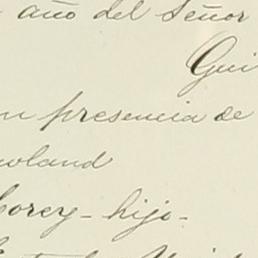 año del Señor
Gui
n presencia de
wland
Corey - hijo -